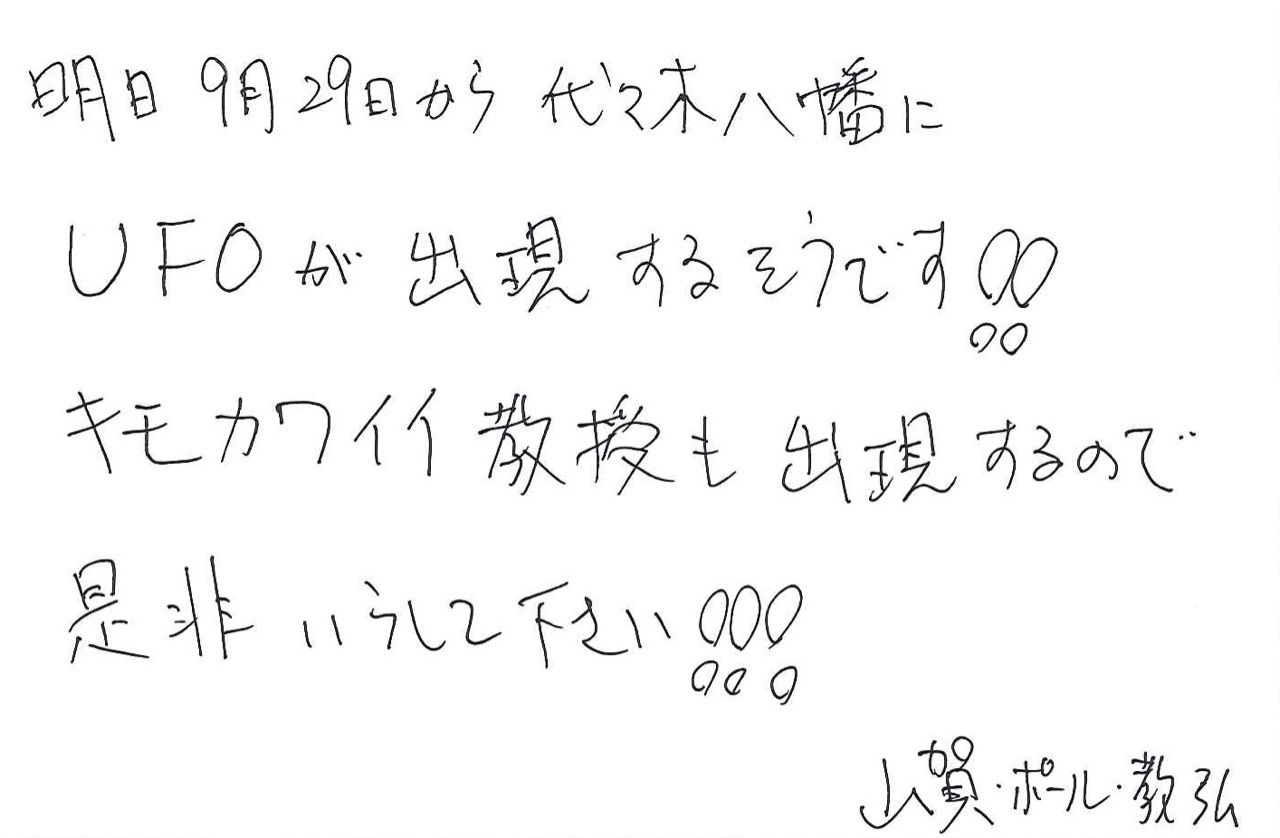 明日9月29日から代々木八幡に
UFOが出現するそうです!!
キモカワイイ教授も出現するので
是非いらして下さい!!!
山賀・ポール・教弘